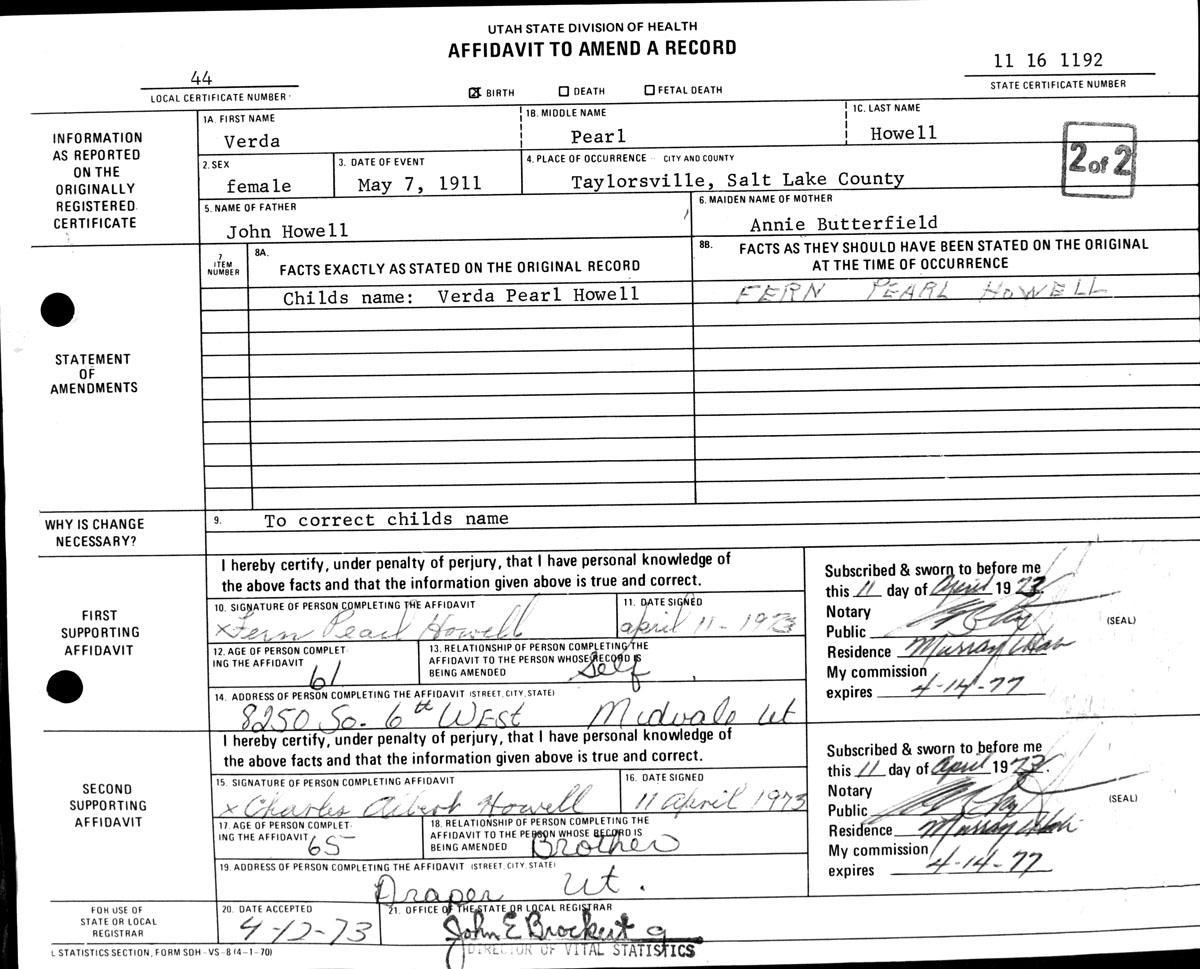 UTAH STATE DIVISION OF HEALTH
AFFIDAVIT TO AMEND A RECORD
44
LOCAL CERTIFICATE NUMBER
☒ BIRTH ☐ DEATH ☐ FETAL DEATH
11 16 1192
STATE CERTIFICATE NUMBER
INFORMATION
AS REPORTED
ON THE
ORIGINALLY
REGISTERED
CERTIFICATE
1A. FIRST NAME
Verda
1B. MIDDLE NAME
Pearl
1C. LAST NAME
Howell
2 of 2
2. SEX
female
3. DATE OF EVENT
May 7, 1911
4. PLACE OF OCCURRENCE - CITY AND COUNTY
Taylorsville, Salt Lake County
5. NAME OF FATHER
John Howell
6. MAIDEN NAME OF MOTHER
Annie Butterfield
STATEMENT
OF
AMENDMENTS
7
ITEM
NUMBER
8A.
FACTS EXACTLY AS STATED ON THE ORIGINAL RECORD
8B. FACTS AS THEY SHOULD HAVE BEEN STATED ON THE ORIGINAL
AT THE TIME OF OCCURRENCE
Childs name: Verda Pearl Howell
FERN PEARL HOWELL
WHY IS CHANGE
NECESSARY?
9. To correct childs name
FIRST
SUPPORTING
AFFIDAVIT
I hereby certify, under penalty of perjury, that I have personal knowledge of
the above facts and that the information given above is true and correct.
10. SIGNATURE OF PERSON COMPLETING THE AFFIDAVIT
x Fern Pearl Howell
11. DATE SIGNED
april 11 - 1973
12. AGE OF PERSON COMPLET-
ING THE AFFIDAVIT
61
13. RELATIONSHIP OF PERSON COMPLETING THE
AFFIDAVIT TO THE PERSON WHOSE RECORD IS
BEING AMENDED
Self
14. ADDRESS OF PERSON COMPLETING THE AFFIDAVIT (STREET, CITY, STATE)
8250 So. 6th WEST Midvale Ut
Subscribed & sworn to before me
this 11 day of April 1973.
Notary
Public
Residence Murray Utah
My commission
expires 4-14-77
(SEAL)
SECOND
SUPPORTING
AFFIDAVIT
I hereby certify, under penalty of perjury, that I have personal knowledge of
the above facts and that the information given above is true and correct.
15. SIGNATURE OF PERSON COMPLETING AFFIDAVIT
x Charles Albert Howell
16. DATE SIGNED
11 April 1973
17. AGE OF PERSON COMPLET-
ING THE AFFIDAVIT
65
18. RELATIONSHIP OF PERSON COMPLETING THE
AFFIDAVIT TO THE PERSON WHOSE RECORD IS
BEING AMENDED
Brother
19. ADDRESS OF PERSON COMPLETING THE AFFIDAVIT (STREET, CITY, STATE)
Draper Ut.
Subscribed & sworn to before me
this 11 day of April 1973.
Notary
Public
Residence Murray Utah
My commission
expires 4-14-77
(SEAL)
FOR USE OF
STATE OR LOCAL
REGISTRAR
20. DATE ACCEPTED
4-12-73
21. OFFICE OF THE STATE OR LOCAL REGISTRAR
John E Brockert
DIRECTOR OF VITAL STATISTICS
L STATISTICS SECTION, FORM SDH-VS-8 (4-1-70)